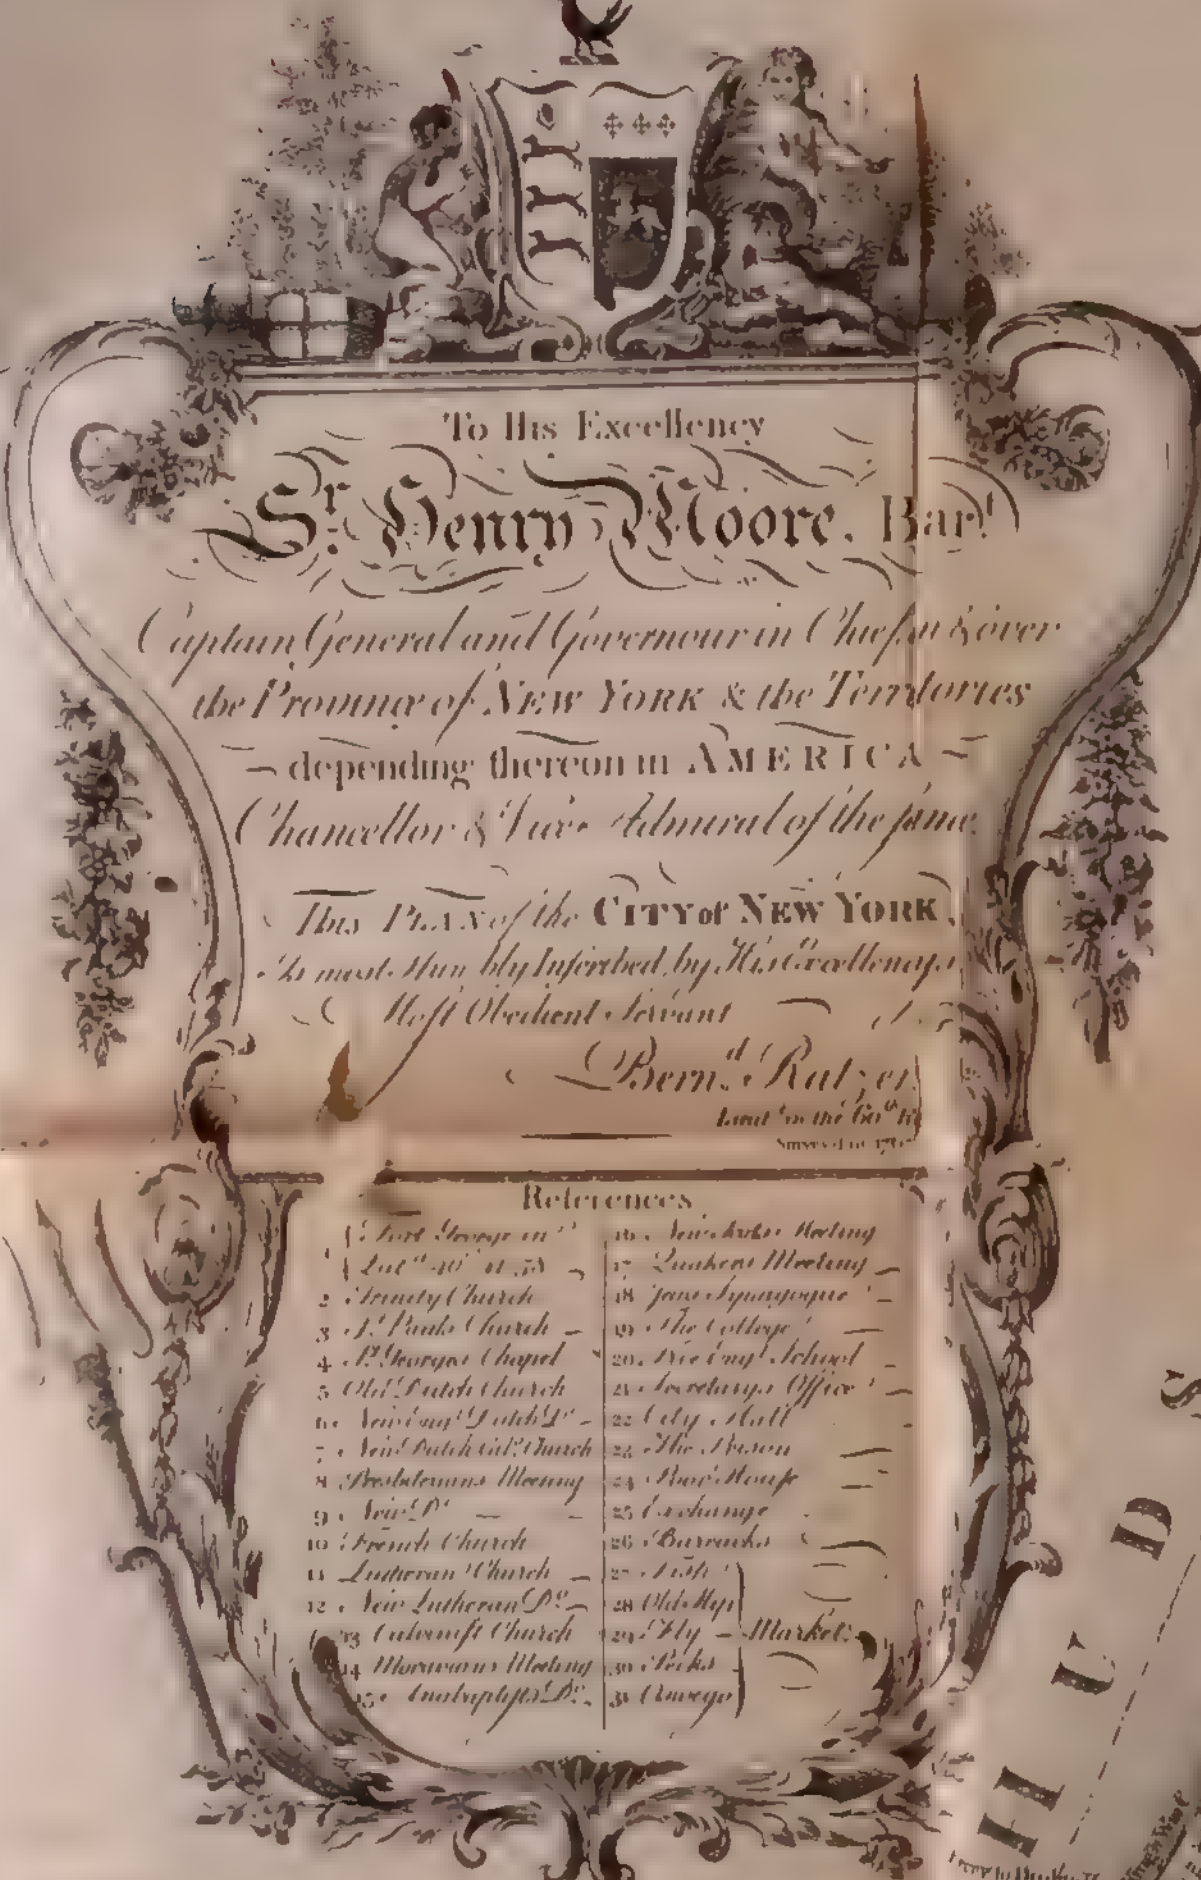 To His Excellency
Sr. Henry Moore, Bart.
Captain General and Governour in Chief in & over
the Province of NEW YORK & the Territories
depending thereon in AMERICA
Chancellor & Vice Admiral of the same.
This PLAN of the CITY of NEW YORK,
Is most Humbly Inscribed, by His Excellency's
Most Obedient Servant
Bernd. Ratzer
Lieut. in the 60th
References
1 Fort George in
Latd. 40
2 Trinity Church
3 St. Pauls Church
4 St. Georges Chapel
5 Old Dutch Church
6 New Dutch Do.
7 New Dutch Church
8 Presbiterians Meeting
9 New Do.
10 French Church
11 Lutheran Church
12 New Lutheran Do.
13 Calvinist Church
14 Moravians Meeting
15 Anabaptists Do.
16 New Meeting
17 Quakers Meeting
18 Jews Synagogue
19 The College
20 School
21 Secretarys Office
22 City Hall
23 The Prison
24 Poor House
25 Exchange
26 Barracks
27 Fish
28 Old Slip
29 Fly Market
30 Pecks
31 Oswego
HUDS